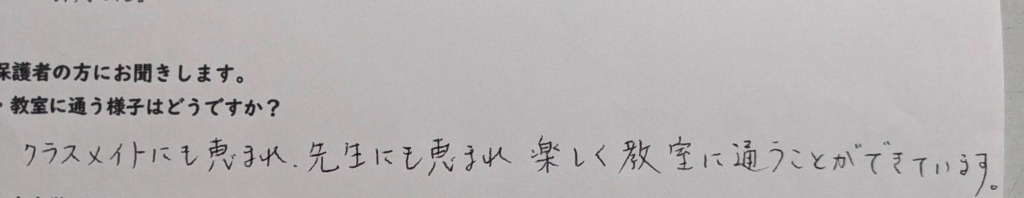 保護者の方にお聞きします。
・教室に通う様子はどうですか？
クラスメイトにも恵まれ、先生にも恵まれ 楽しく教室に通うことができています。